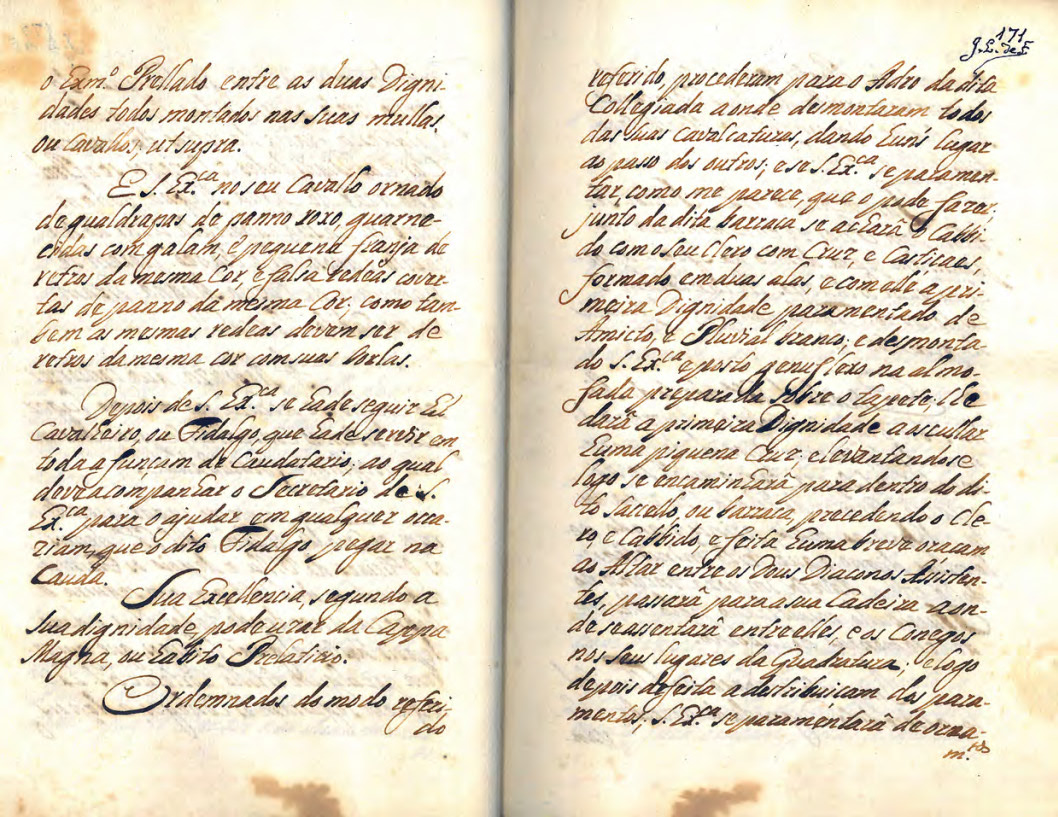 o Exmº Prellado entre as duas Digni-
dades todos montados nas suas mullas,
ou Cavallos, ut supra.
E S. Ex.ca no seu Cavallo ornado
de gualdrapas de panno roxo, guarne-
cidas com galam, e pequena franja de
retros da mesma Cor, e falsa redeas cover-
tas de panno da mesma Cor, como tan-
bem as mesmas redeas devem ser de
retros da mesma cor com suas borlas.
Depois de S. Ex.ca se hade seguir hŨ
Cavalheiro, ou Fidalgo, que hade servir em
toda a funcam de Caudatario; ao qual
deve acompanhar o Secretario de S.
Ex.ca para o ajudar em qualquer occa-
ziam, que o dito Fidalgo pegar na
Cauda.
Sua Excellencia, segundo a
sua dignidade, pode uzar da Cappa
Magna, ou habito Prelaticio.
Ordemnados do modo referi-
do
171
J. L. de F
referido, procederam para o Adro da dita
Collegiada aonde desmontaram todos
das suas cavalcaturas, dando huns lugar
ao passo dos outros; e se S. Ex.ca se paramen-
tar, como me parece, que o pode fazer,
junto da dita barraca se achará o Cabbi-
do com o seu Clero com Cruz e Castisaes,
formado em duas alas, e com elle a pri-
meira Dignidade paramentado de
Amicto, e Pluvial branco; e desmonta-
do S. Ex.ca e posto genuflexo na almo-
fada preparada sobre o tapete, lhe
dará a primeira Dignidade a oscullar
huma piquena Cruz; e levantandose
logo se encaminhará para dentro do di-
to Sacelo, ou barraca, precedendo o Cle-
ro e Cabbido, e feita huma breve oracam
ao Altar entre os dous Diaconos Assisten-
tes, passará para a sua Cadeira aon-
de se assentará entre elles, e os Conegos
nos seus lugares da Quadratura; e logo
depois de feita a destribuicam dos para-
mentos, S. Ex.ca se paramentará de orna-
m.tos